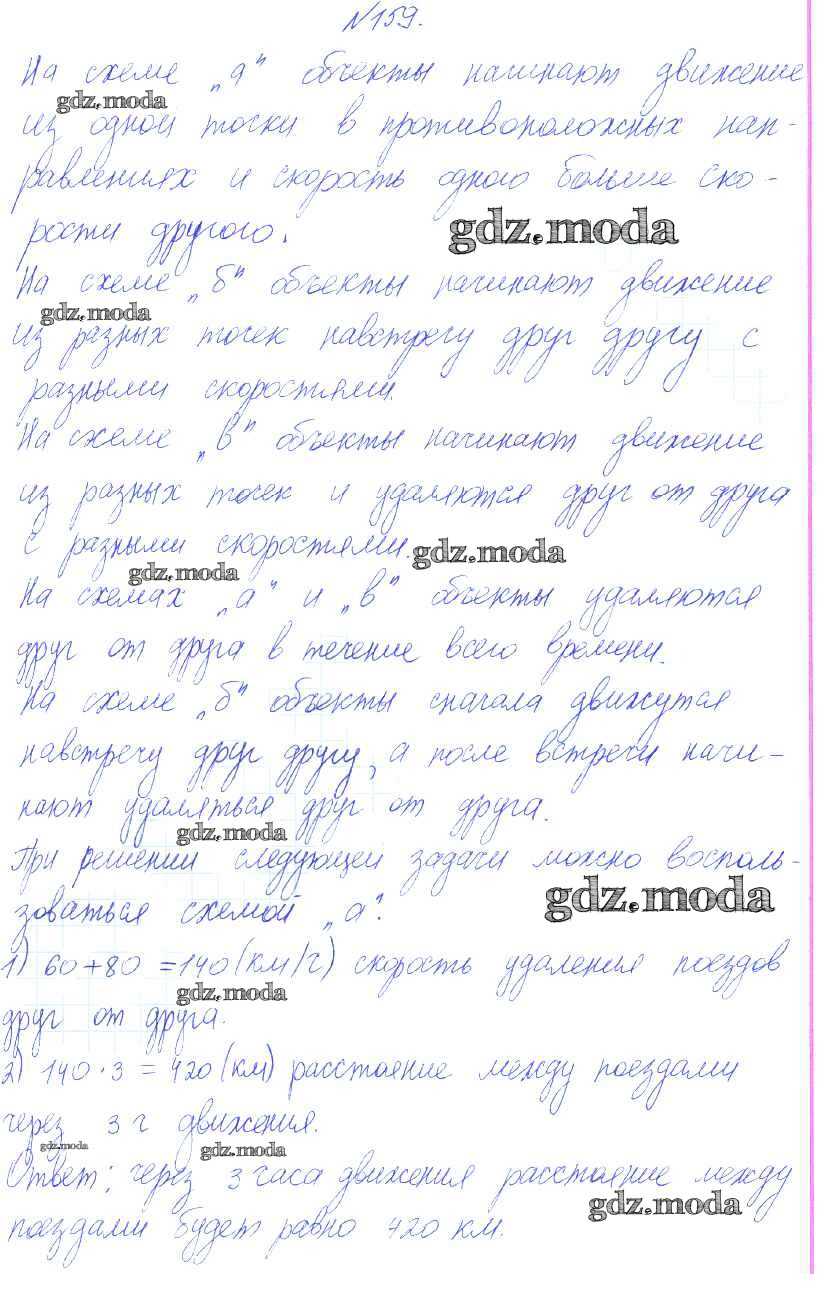 №159.
На схеме „а" объекты начинают движение
gdz.moda
из одной точки в противоположных нап-
равлениях и скорость одного больше ско-
рости другого.
gdz.moda
На схеме „б" объекты начинают движение
gdz.moda
из разных точек навстречу друг другу с
разными скоростями.
На схеме „в" объекты начинают движение
из разных точек и удаляются друг от друга
с разными скоростями.
gdz.moda
gdz.moda
На схемах „а" и „в" объекты удаляются
друг от друга в течение всего времени.
На схеме „б" объекты сначала движутся
навстречу друг другу, а после встречи начи-
нают удаляться друг от друга.
gdz.moda
При решении следующей задачи можно восполь-
зоваться схемой „а".
gdz.moda
1) 60+80 =140 (км/ч) скорость удаления поездов
gdz.moda
друг от друга.
2) 140·3 = 420 (км) расстояние между поездами
через 3 ч движения.
gdz.moda
gdz.moda
Ответ: через 3 часа движения расстояние между
gdz.moda
поездами будет равно 420 км.